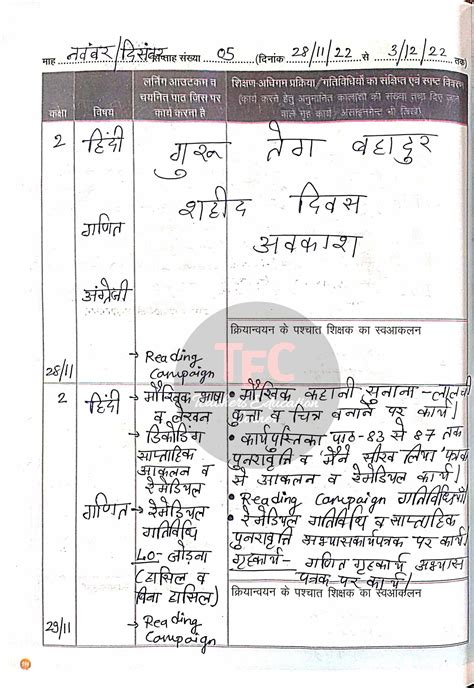 माह नवंबर/दिसंबर सप्ताह संख्या 05 (दिनांक 28/11/22 से 3/12/22 तक)
कक्षा विषय लर्निंग आउटकम व चयनित पाठ जिस पर कार्य करना है शिक्षण-अधिगम प्रक्रिया/गतिविधियों का संक्षिप्त एवं स्पष्ट विवरण
(कार्य करने हेतु अनुमानित कालांशों की संख्या तथा दिए जाने
वाले गृह कार्य / असाइनमेंट भी लिखें)
2 हिंदी गुरू तेग बहादुर
शहीद दिवस
गणित अवकाश
अंग्रेजी
क्रियान्वयन के पश्चात शिक्षक का स्वआकलन
TEC
28/11 → Reading
Campaign
2 हिंदी → मौखिक भाषा
व लेखन
→ डिकोडिंग
साप्ताहिक
आकलन व
रेमेडियल
गणित → रेमेडियल
गतिविधि
LO- जोड़ना
(हासिल व
बिना हासिल)
→ Reading
Campaign
29/11
• मौखिक कहानी सुनाना - लालची
कुत्ता व चित्र बनाने पर कार्य।
• कार्यपुस्तिका पाठ-83 से 87 तक
पुनरावृत्ति व "मैंने सीख लिया" पत्रक
से आकलन व रेमेडियल कार्य।
• Reading Campaign गतिविधियाँ।
• रेमेडियल गतिविधि व साप्ताहिक
पुनरावृत्ति अभ्यासकार्यपत्रक पर कार्य।
गृहकार्य- गणित गृहकार्य अभ्यास
पत्रक पर कार्य।
क्रियान्वयन के पश्चात शिक्षक का स्वआकलन